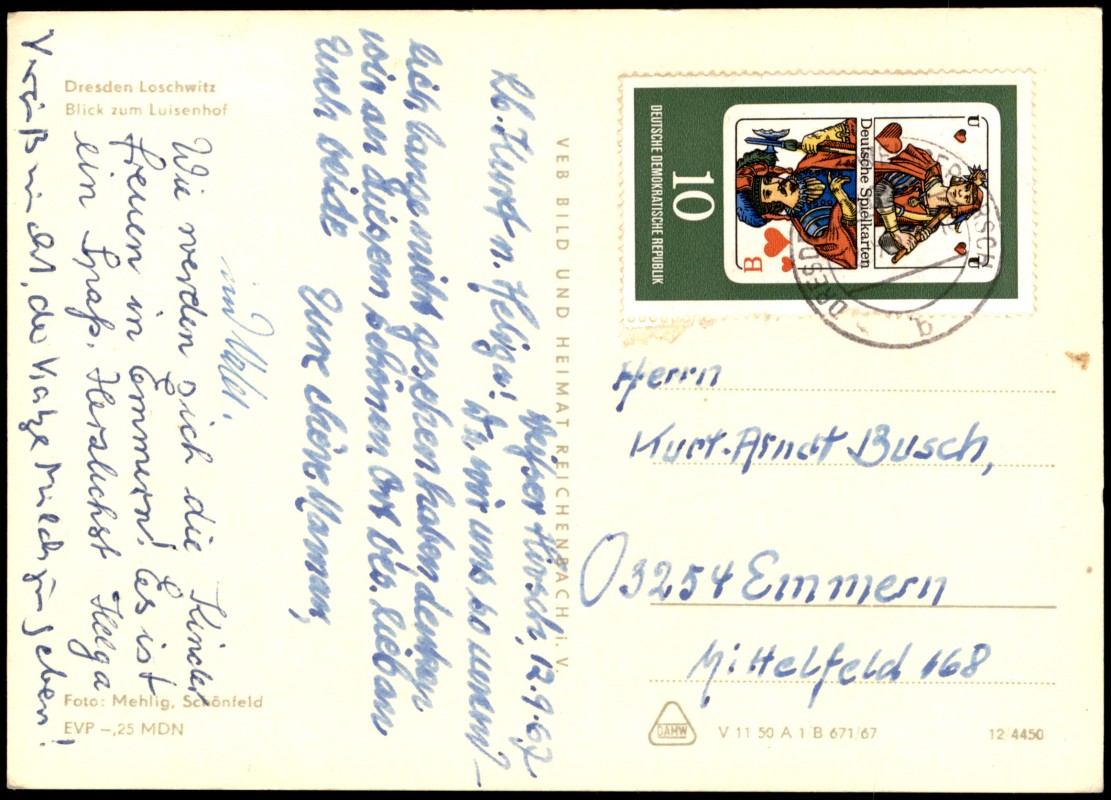 Dresden-Loschwitz
Blick zum Luisenhof
Weißer Hirsch, 12.9.67
Lb. Kurt n. Helga! Da wir uns so unend-
lich lange nicht gesehen haben denken
wir an diesem schönen Ort bes. lieb an
Euch beide
Eure chère Maman,
und Valdi.
Wie werden sich die Kinder
freuen in Emmern! Es ist
ein Spaß. Herzlichst Helga
Vergiß nicht, der Katze Milch zu geben!
Foto: Mehlig, Schönfeld
EVP –,25 MDN
VEB BILD UND HEIMAT REICHENBACH i. V.
DEUTSCHE DEMOKRATISCHE REPUBLIK
10
Deutsche Spielkarten
B
U
U
DRESD
HIRSCH
q
Herrn
Kurt-Arndt Busch,
03254 Emmern
Mittelfeld 168
DAMW
V 11 50 A 1 B 671/67
12 4450